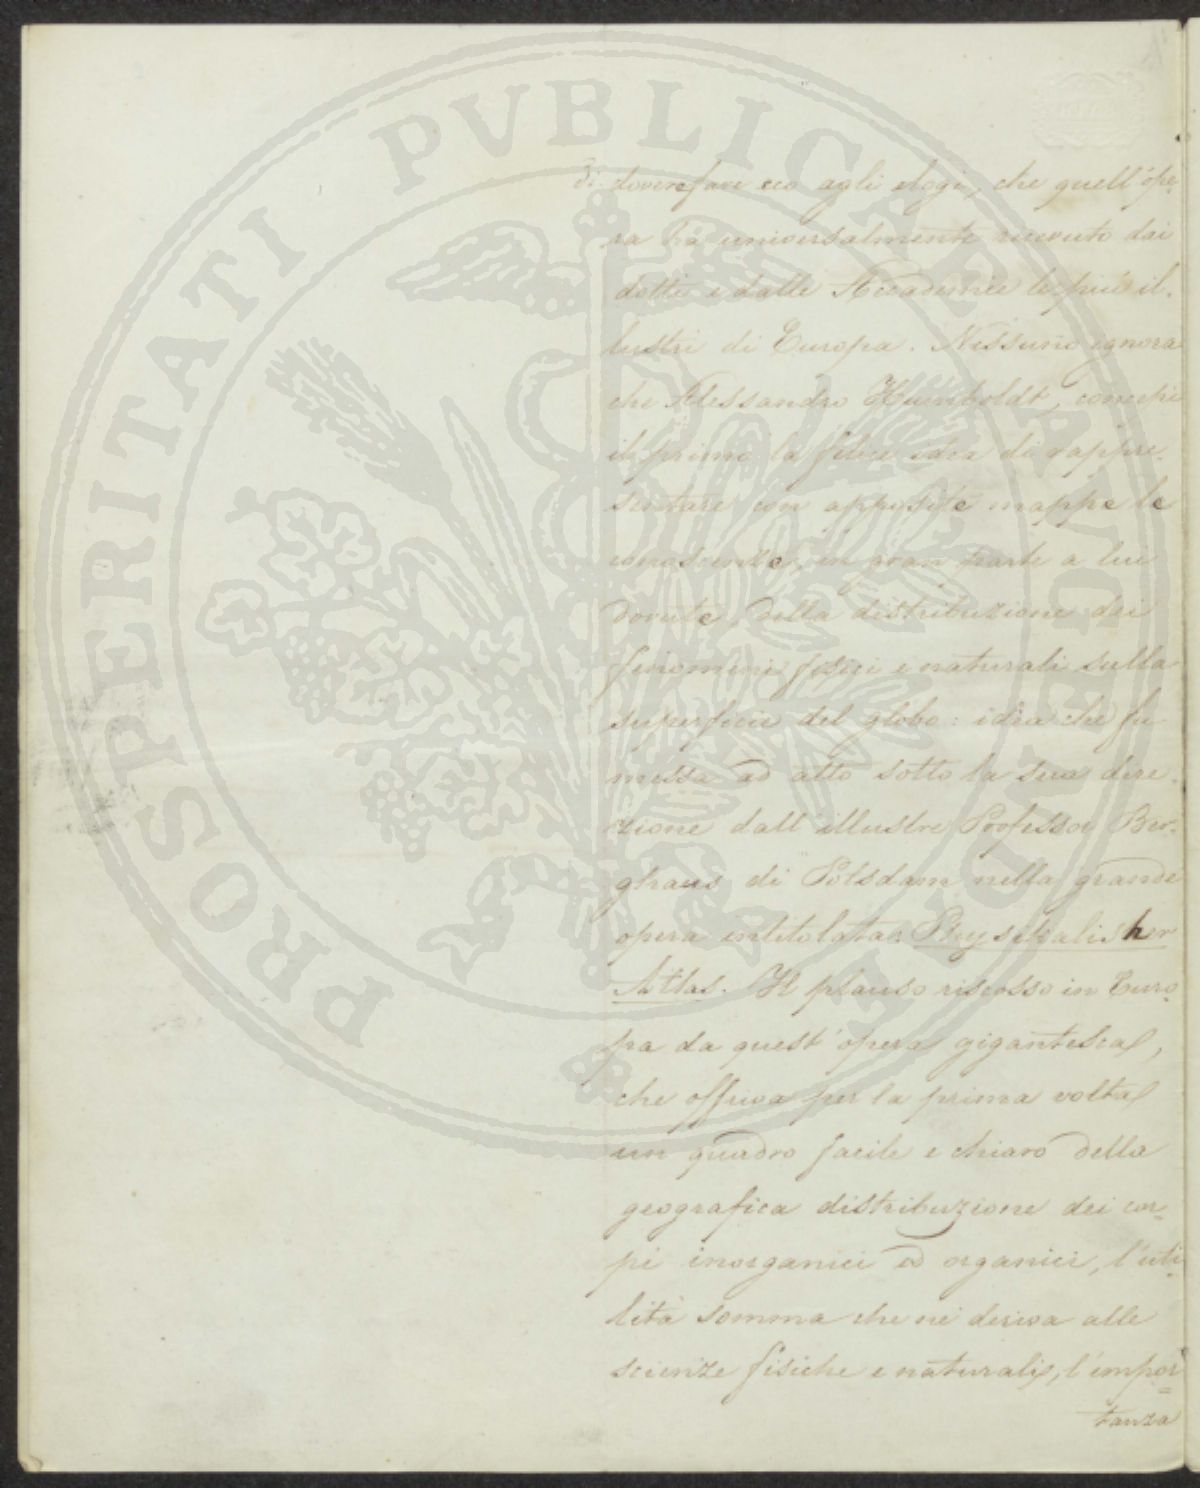 di dover fare eco agli elogi, che quell'ope-
ra ha universalmente ricevuto dai
dotti e dalle Accademie le più il-
lustri di Europa. Nessuno ignora
che Alessandro Humboldt, concepì
il primo la felice idea di rappre-
sentare con apposite mappe le
conoscenze, in gran parte a lui
dovute, della distribuzione dei
fenomeni fisici e naturali sulla
superficie del globo: idea che fu
messa ad atto sotto la sua dire-
zione dall'illustre Professor Ber-
ghaus di Potsdam nella grande
opera intitolata: Physikalisher
Atlas. Il plauso riscosso in Euro-
pa da quest'opera gigantesca,
che offriva per la prima volta
un quadro facile e chiaro della
geografica distribuzione dei cor-
pi inorganici ed organici, l'uti-
lità somma che ne deriva alle
scienze fisiche e naturali, l'impor-
tanza
PROSPERITATI PVBLICAE AVGENDAE